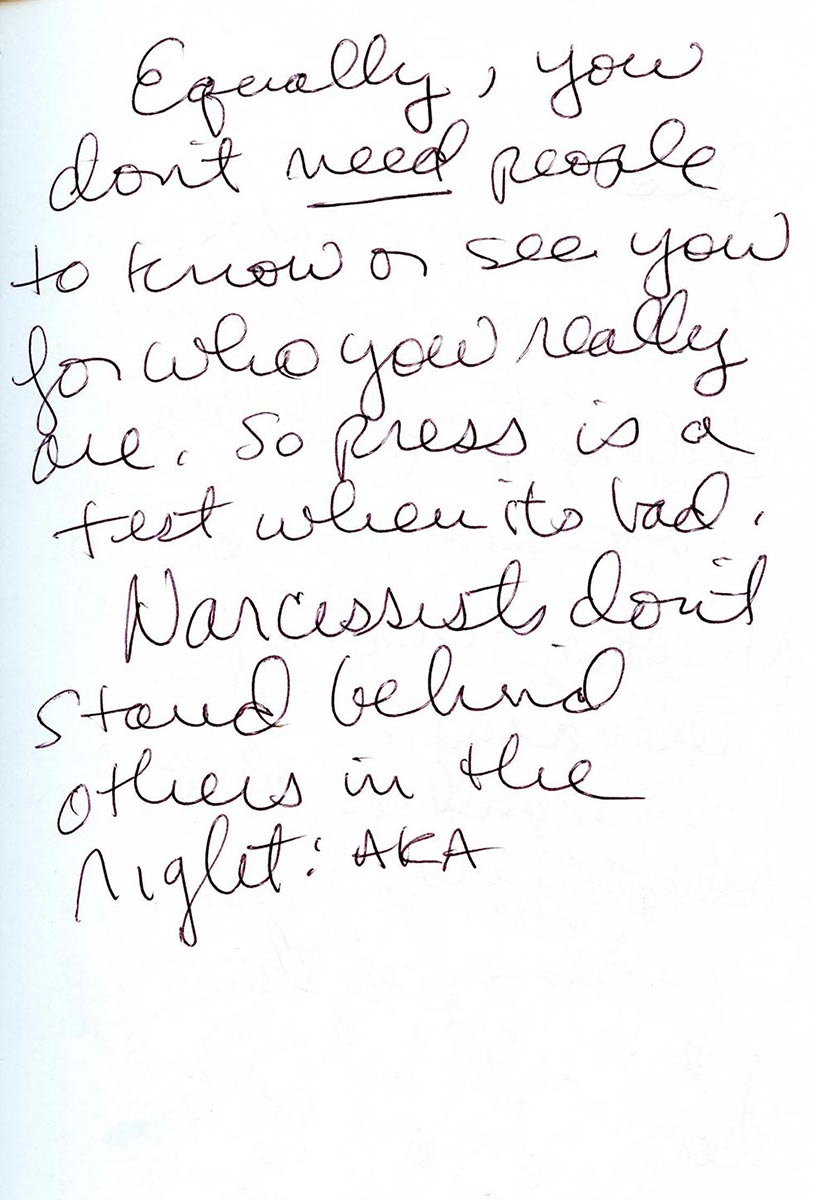 Equally, you
don't need people
to know or see you
for who you really
are. So press is a
test when it's bad.
Narcissists don't
stand behind
others in the
right: AKA